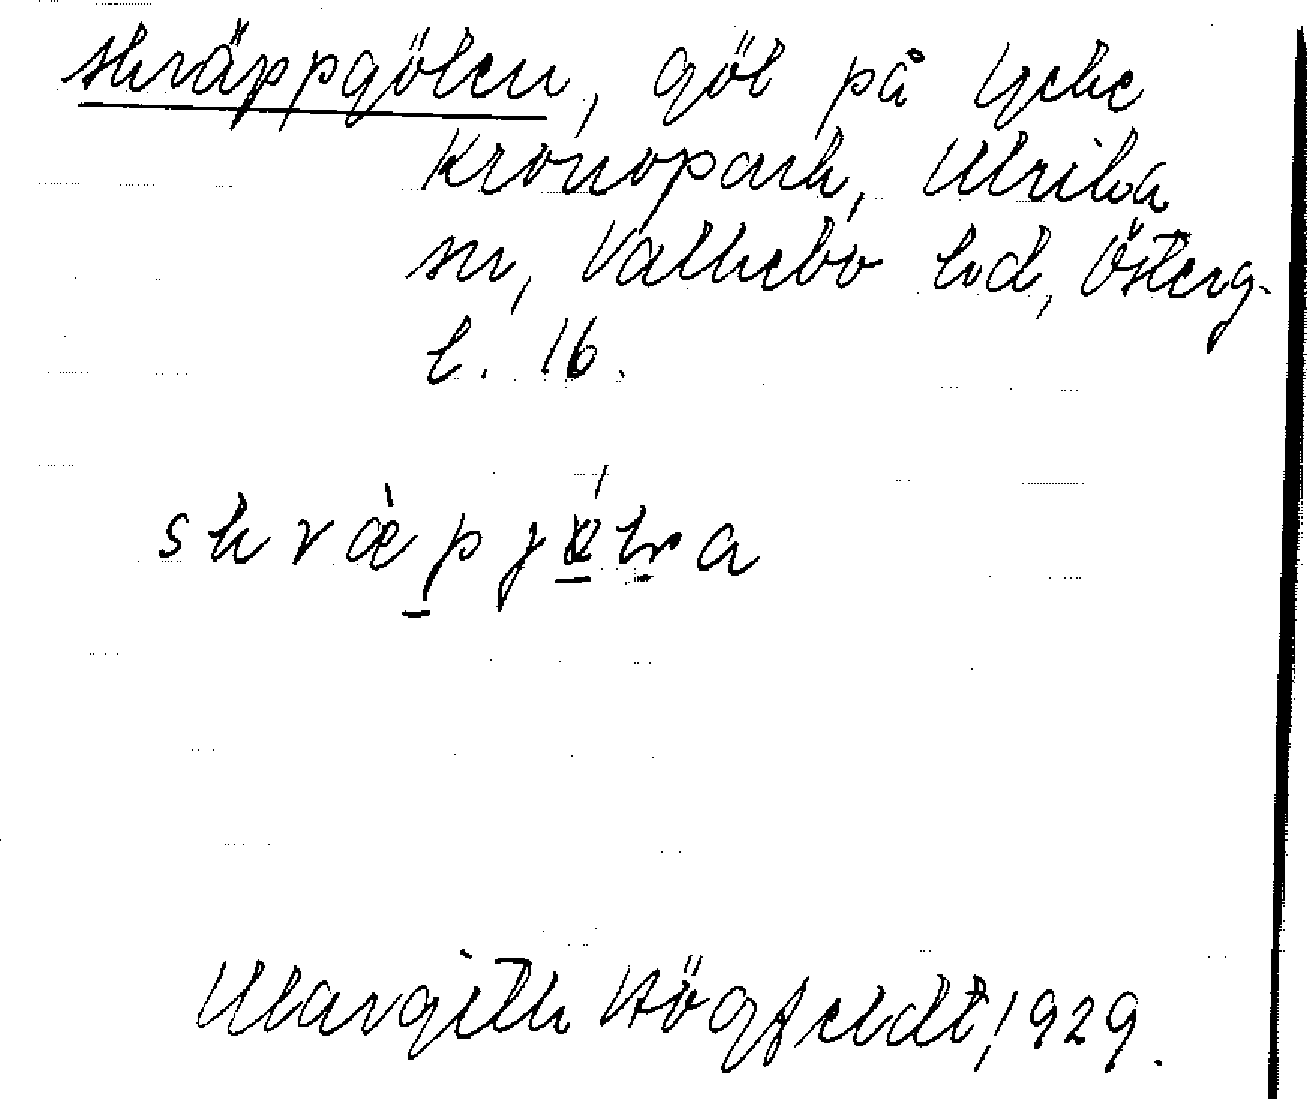 skräppgölen, göl på Lycke
Kronopark, Ulrika
sn, Valkebo hd, Österg.
l. 16.
Margith Högfeldt, 1929.